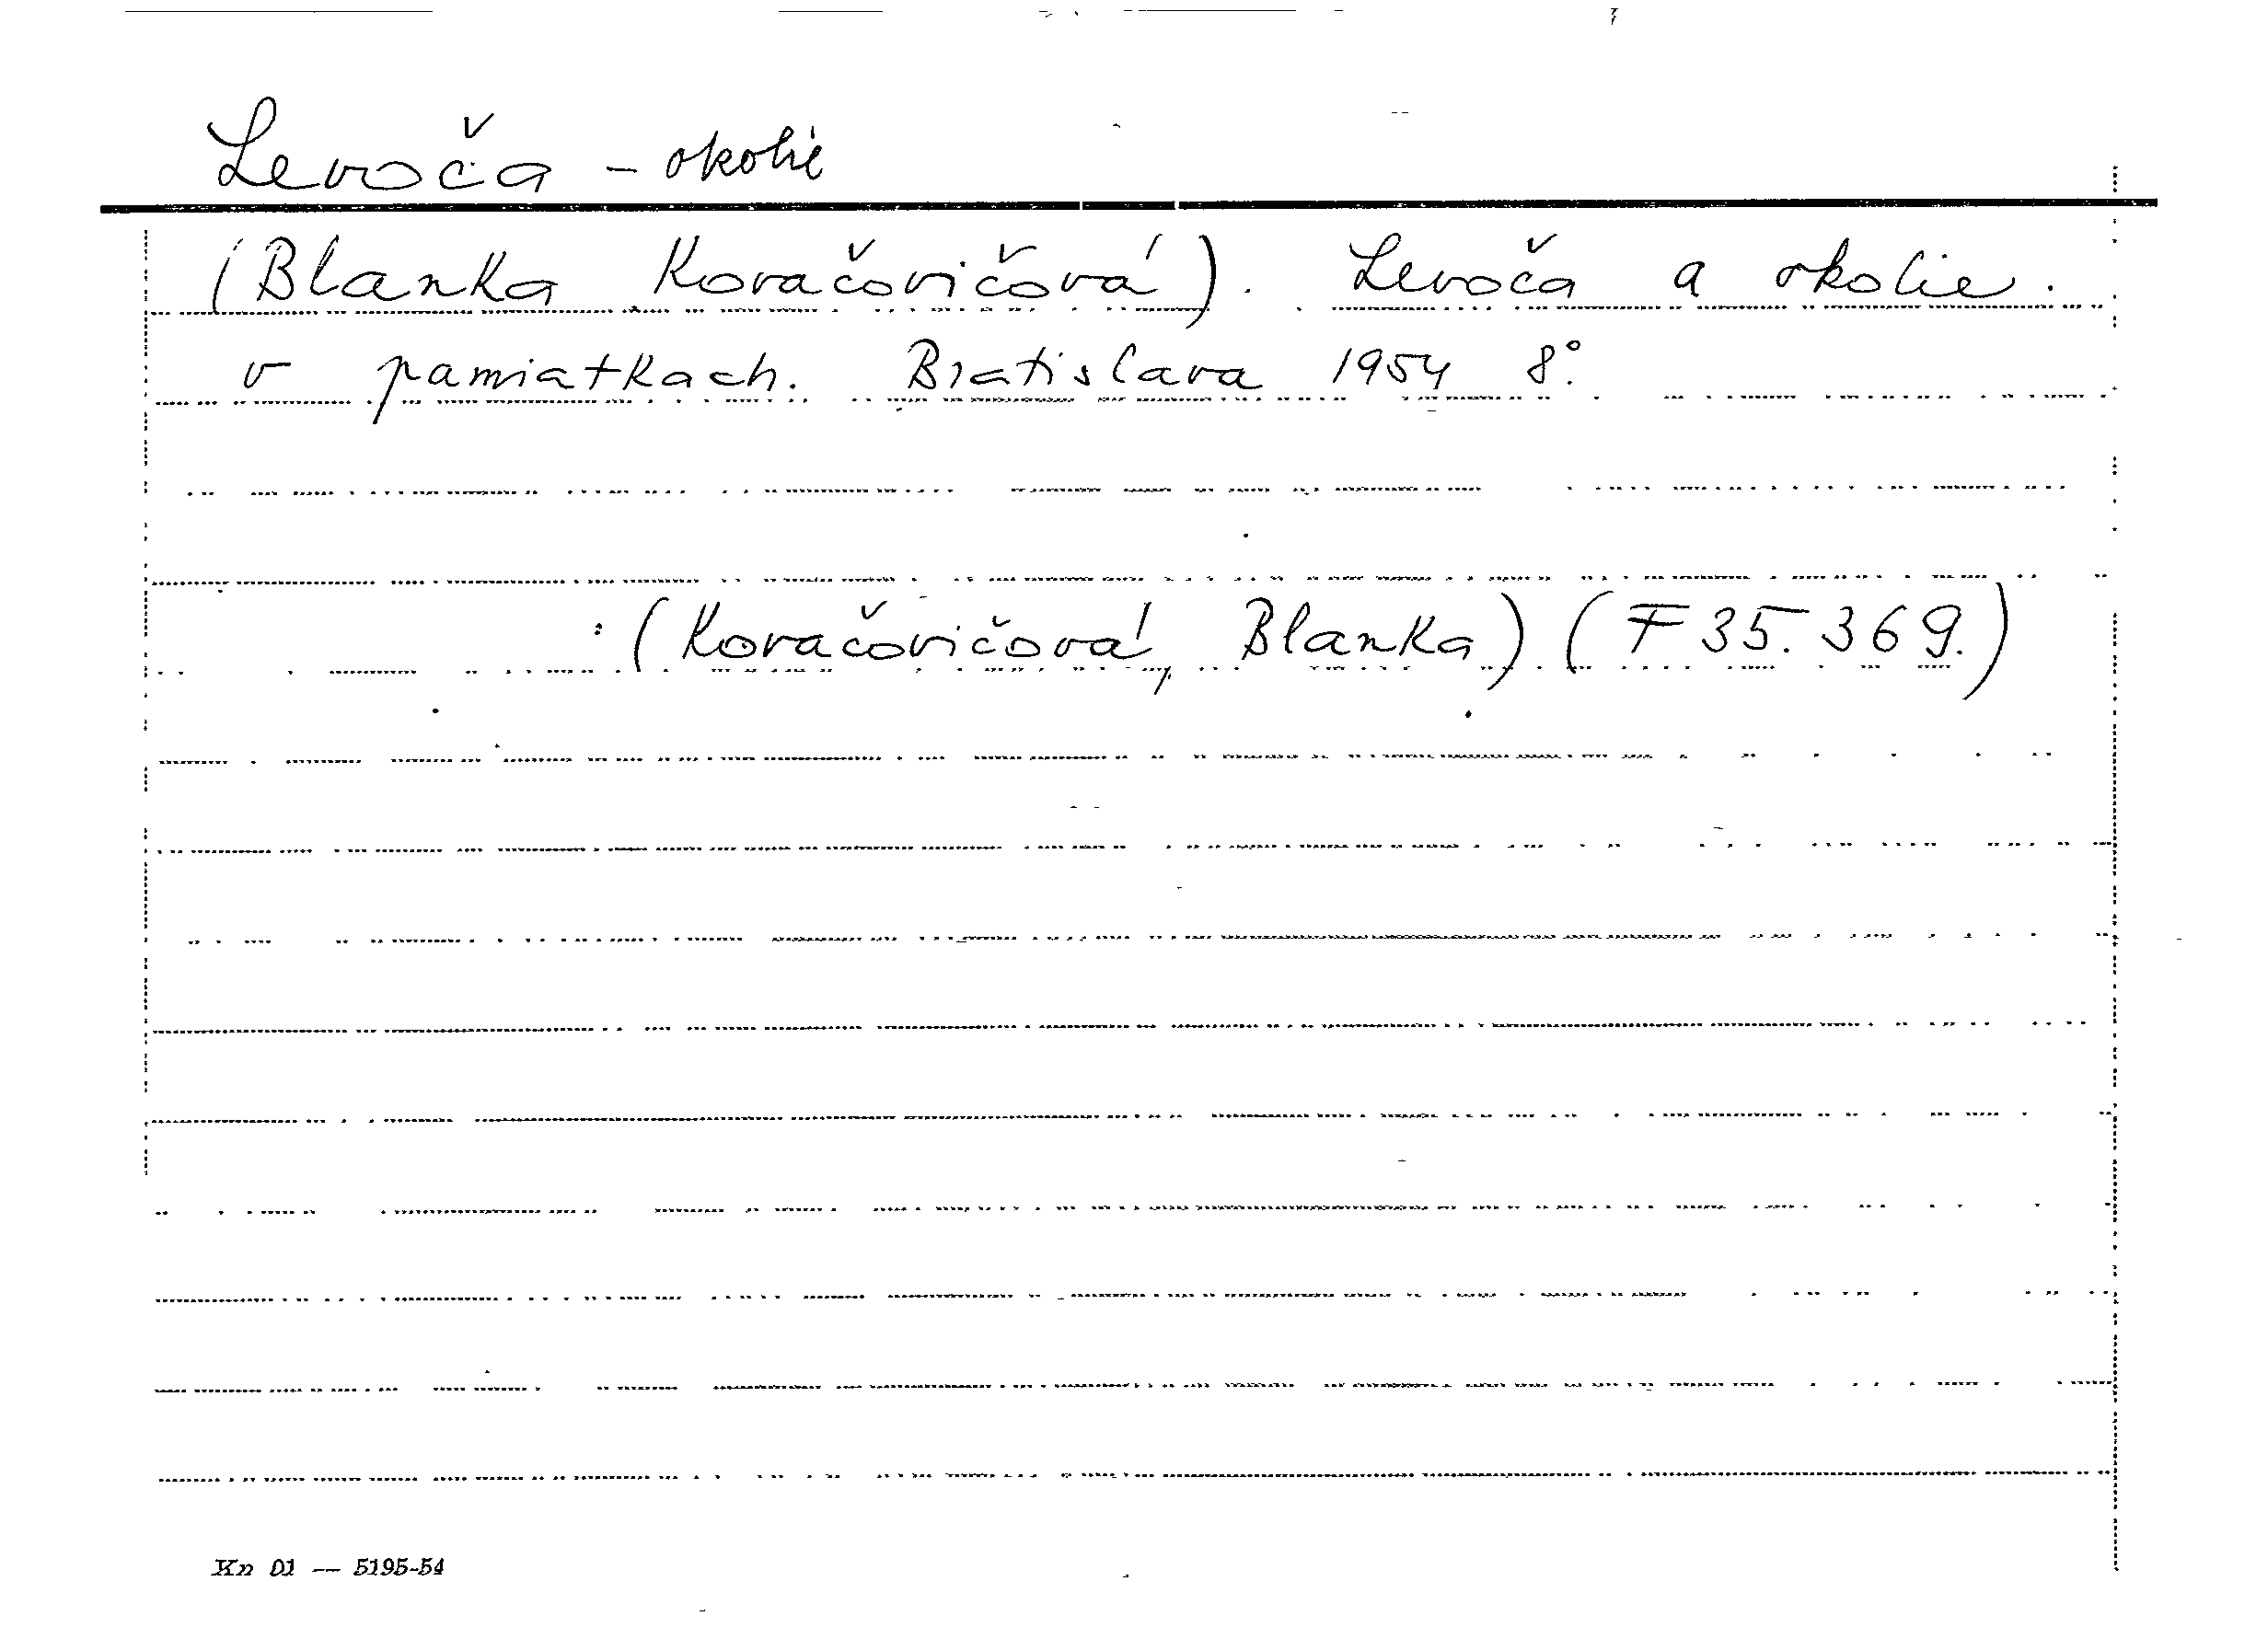 Levoča - okolie
(Blanka Kovačovičová). Levoča a okolie.
v pamiatkach. Bratislava 1954 8°.
: (Kovačovičová, Blanka) (F 35.369.)
Kn 01 — 5195-54